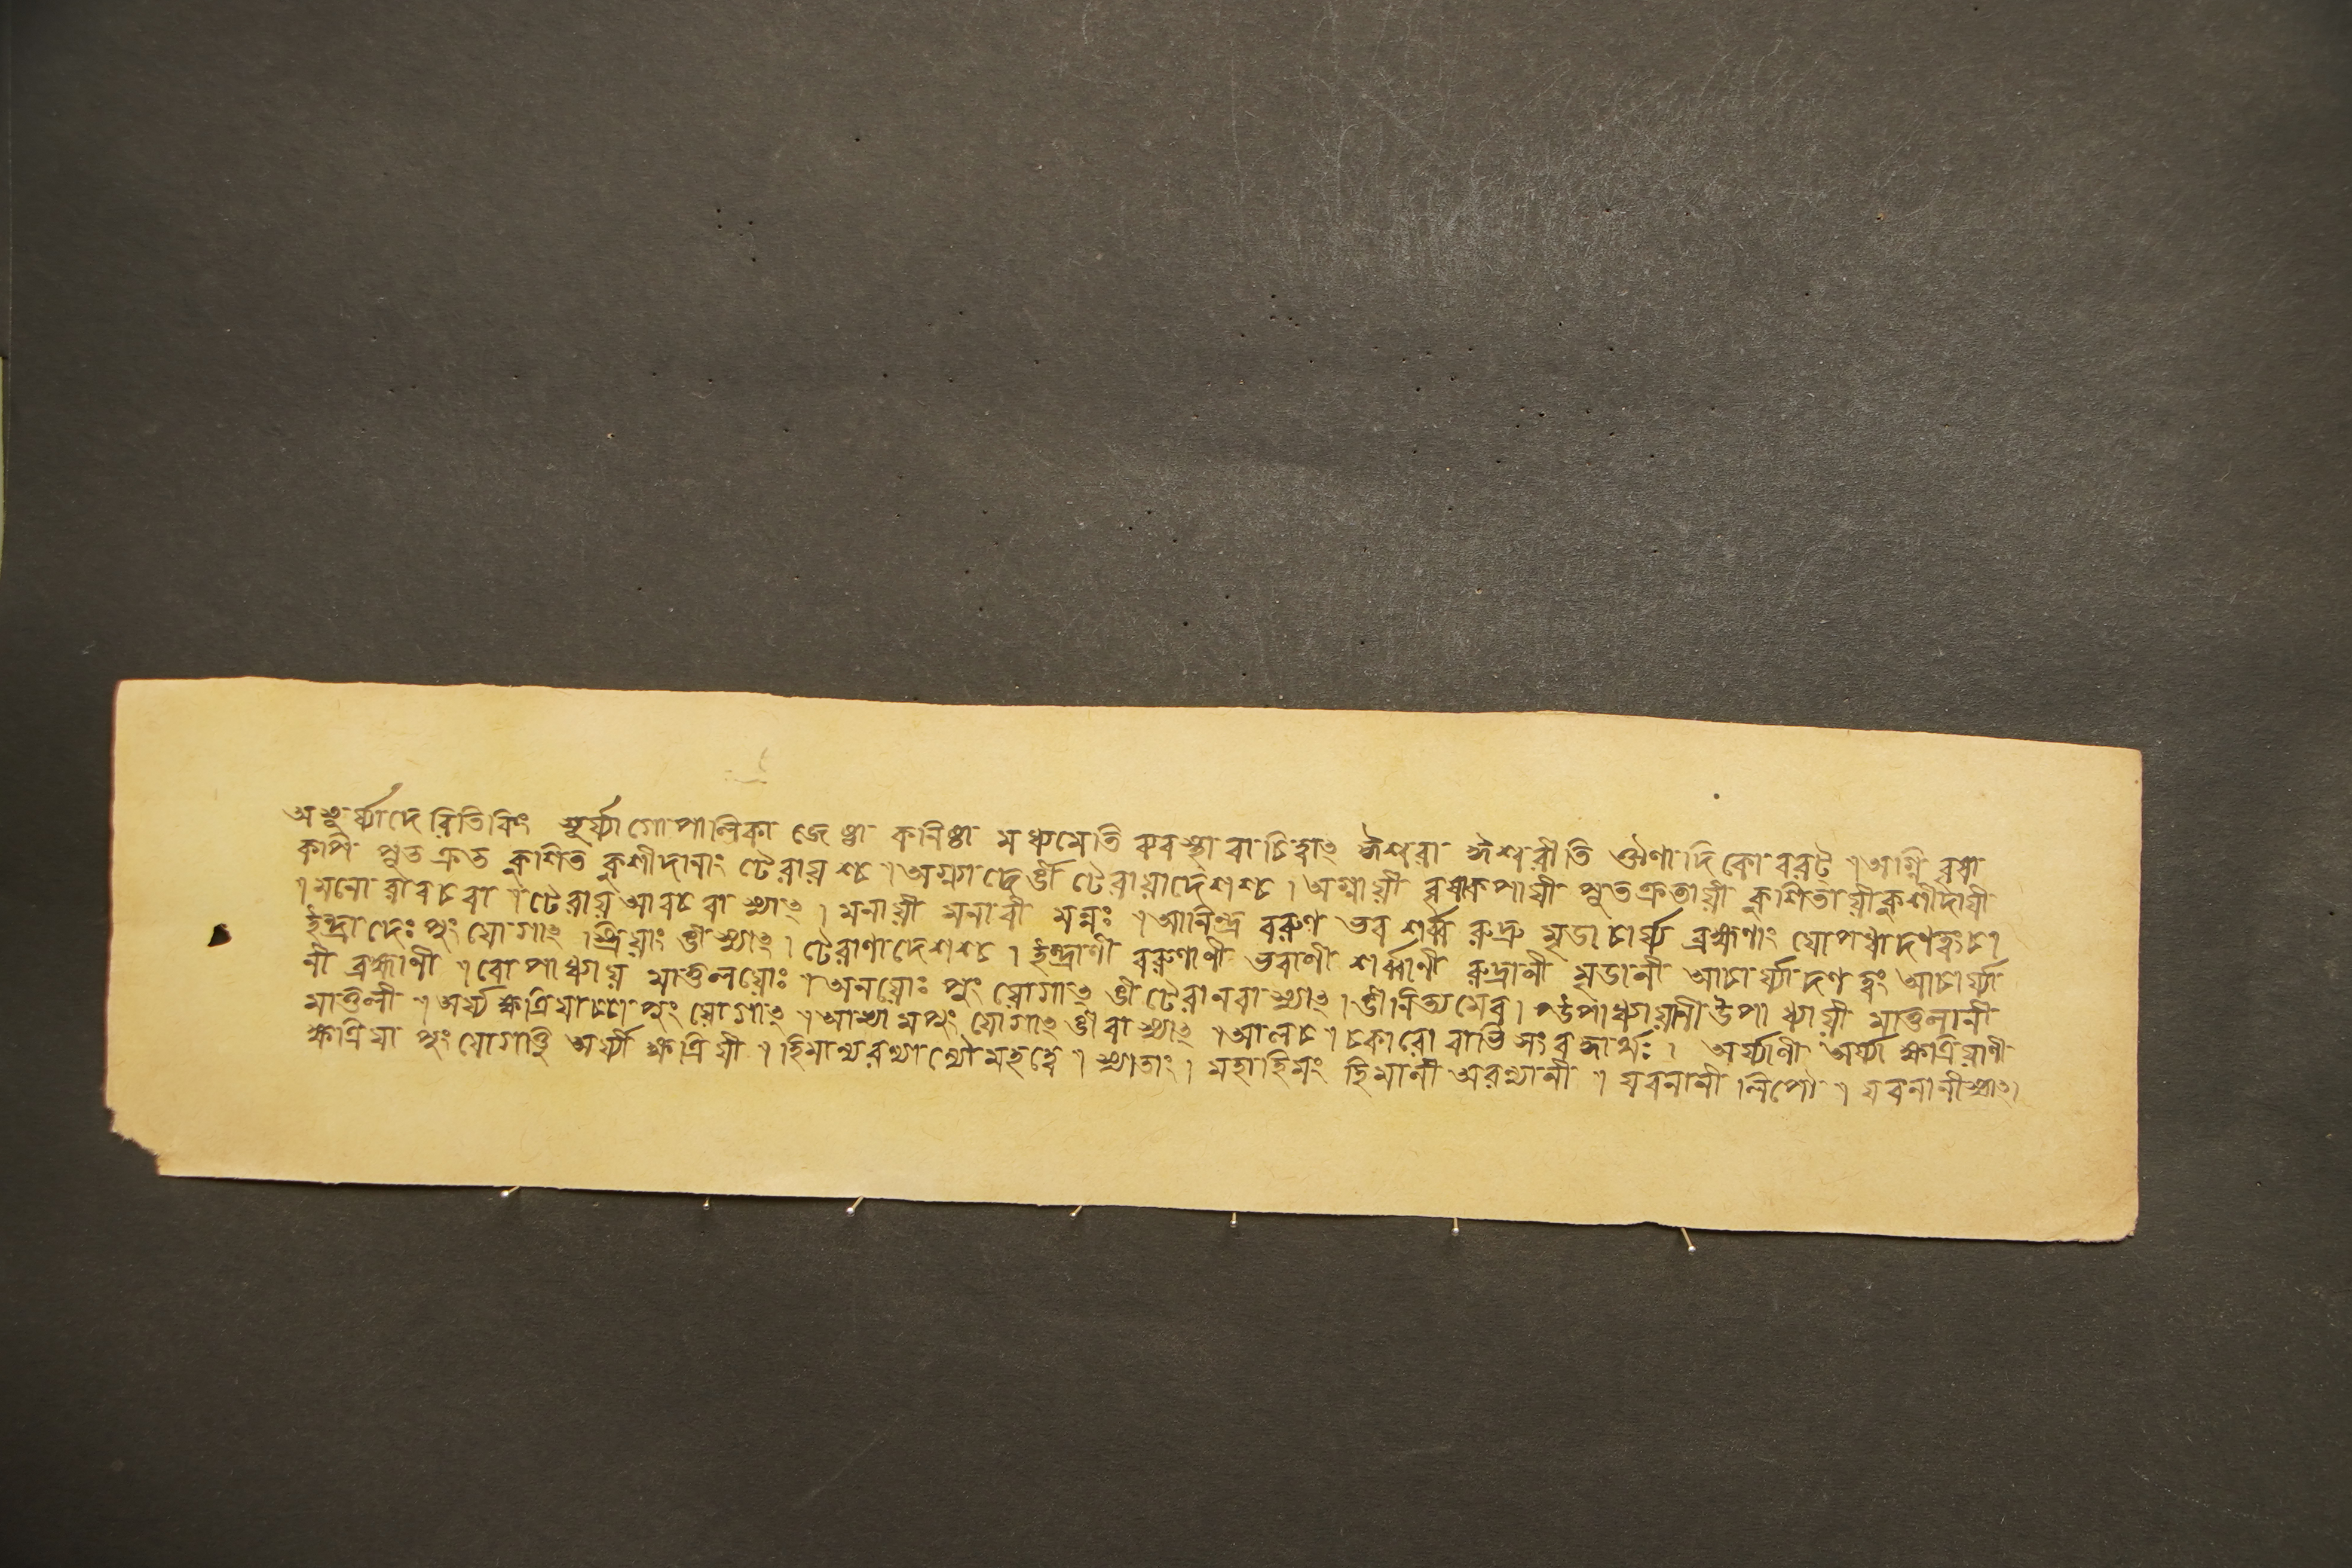 অসূৰ্য্যাদেৰিতিকিং সূৰ্য্যাগোপালিকা জেষ্ঠা কনিষ্ঠা মধ্যমেতি ববস্থা বাচিত্বাৎ ঈশ্বরা ঈশ্বরীতি ঔণাদিকো বরট্ ॥ অগ্নি বৃষা
কপি পুতক্রতু কুশিত কুশীদানাং টেরায়শ্চ ॥ অগ্ন্যাদের্ঙী টেরায়াদেশশ্চ । অগ্নায়ী বৃষাকপায়ী পুতক্রতায়ী কুশিতায়ী কুশীদায়ী
। মনো রাবচবা ॥ টেরায় আবচ বা স্যাৎ । মনায়ী মনাবী মনুঃ ॥ আনিন্দ্র বৰুণ ভব শর্ব্ব ৰুদ্র মৃড়াচার্য্য ব্রহ্মণাং যোপধাদণত্বংচ ।
ইন্দ্রাদেঃ পুং যোগাৎ স্ত্রিয়াং ঙী স্যাৎ । টেরাণাদেশশ্চ । ইন্দ্রাণী বৰুণাণী ভবাণী শর্ব্বাণী ৰুদ্রানী মৃড়ানী আচার্য্যাদণত্বং আচার্য্যা
নী ব্রহ্মাণী ॥ বোপাধ্যায় মাতুলয়োঃ ॥ অনয়োঃ পুং যোগাৎ ঙী টেরানবা স্যাৎ । ঙীনিত্যমেব । উপাধ্যায়ানী উপাধ্যায়ী মাতুলানী
মাতুলী ॥ অর্য্য ক্ষত্রিয়াচ্চা পুং যোগাৎ ॥ আভ্যামপুং যোগাৎ ঙী বা স্যাৎ ॥ আলচ ॥ চকারো বাভি সংবন্ধার্থঃ । অর্য্যাণী অর্য্যা ক্ষত্রিয়াণী
ক্ষত্রিয়া পুং যোগাত্তু অর্য্যী ক্ষত্রিয়ী ॥ হিমান্যরণ্যান্যৌ মহত্ত্বে ॥ স্যাতাং । মহাহিমং হিমানী অরণ্যানী ॥ যবনানী লিপৌ ॥ যবনানী স্যাৎ ।